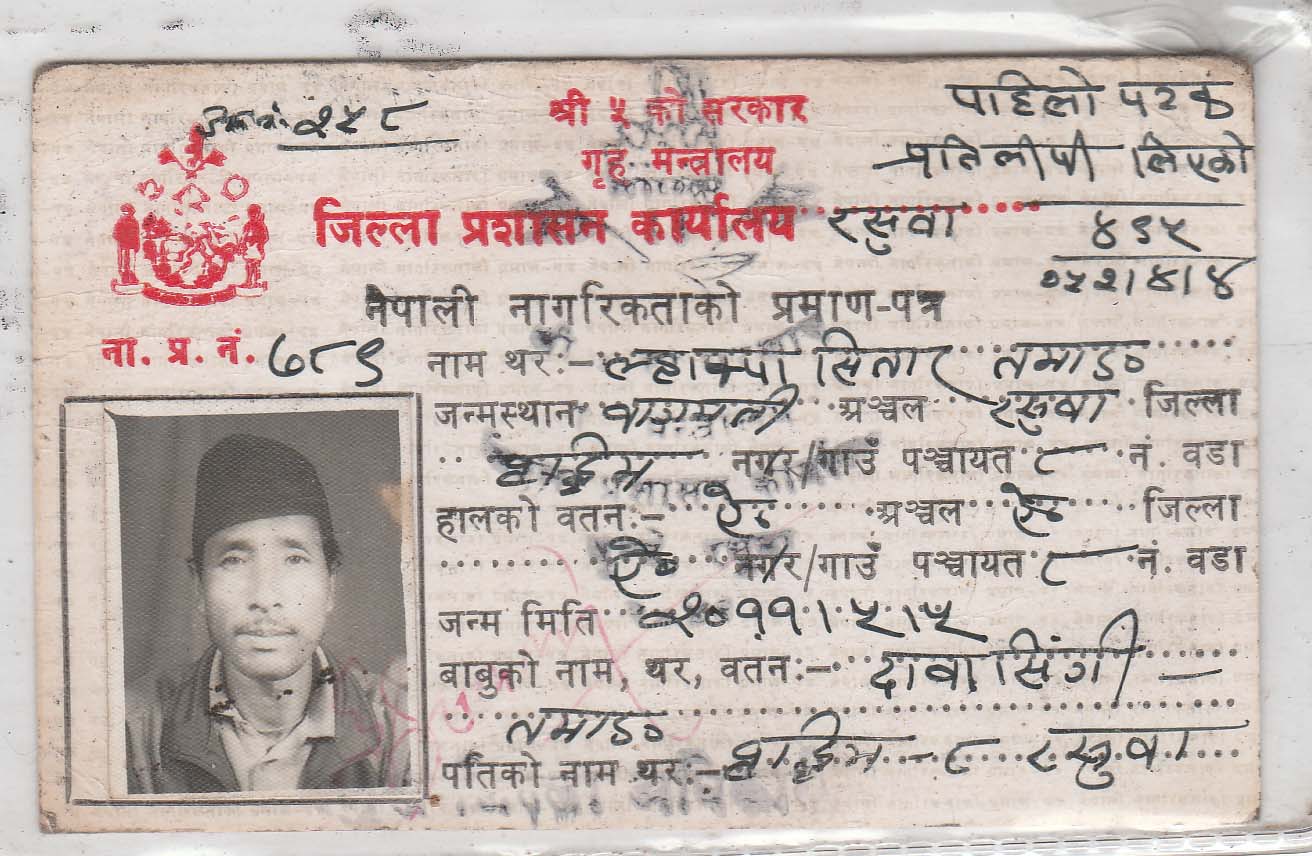 २५८
श्री ५ को सरकार
गृह मन्त्रालय
जिल्ला प्रशासन कार्यालय रसुवा
पहिलो पटक
प्रतिलीपी लिएको
४९५
०५२।४।४
नेपाली नागरिकताको प्रमाण-पत्र
ना. प्र. नं. ७८९
नाम थर:- ल्हाक्पा सितार तमाङ
जन्मस्थान वाग्मती अञ्चल रसुवा जिल्ला
नगर/गाउं पञ्चायत ८ नं. वडा
हालको वतन:- ऐ० अञ्चल ऐ० जिल्ला
ऐ० नगर/गाउं पञ्चायत ८ नं. वडा
जन्म मिति २०११।५।५
बाबुको नाम, थर, वतन:- दावा सिंगी
तमाङ
पतिको नाम थर:- ८ रसुवा